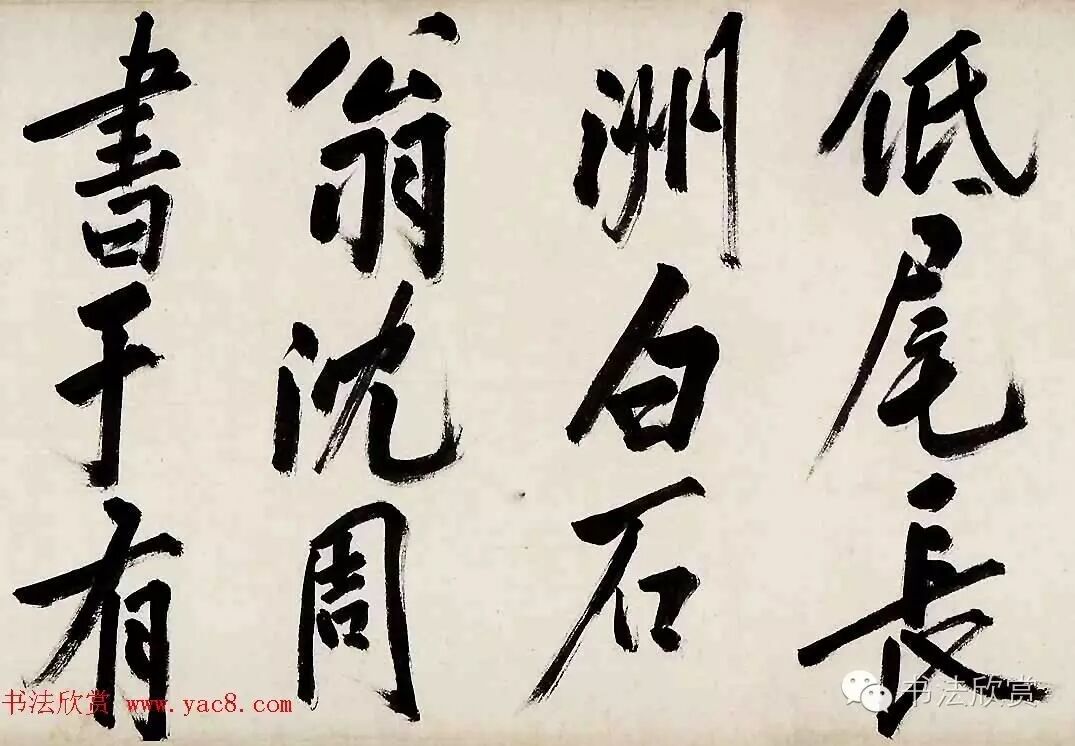 低尾長
洲白石
翁沈周
書于有
书法欣赏 www.yac8.com
书法欣赏